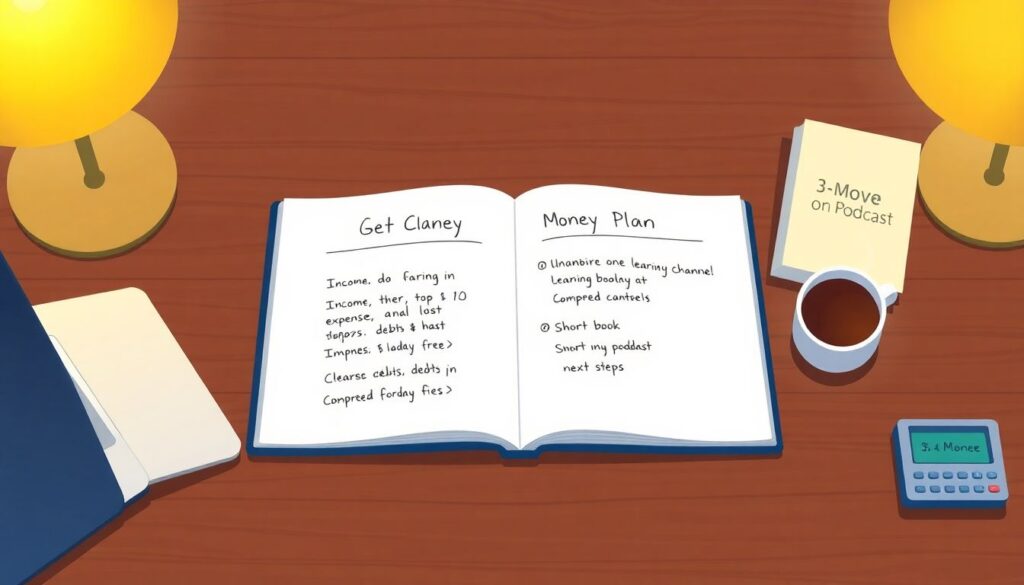 Get Claney
Income. do faring in
Income, ther, top $ 10
expense, anal lost
debts & hast
Impnes. $ laday free>
Clearse cebts, dedts in
Compreed forday fies>
Money Plan
① Unanbire one learniy channel
Leaning boolay at
Compred cantsels
② Short book
Snort iny poddast
next steps
3-Move
on Podcast
Monee